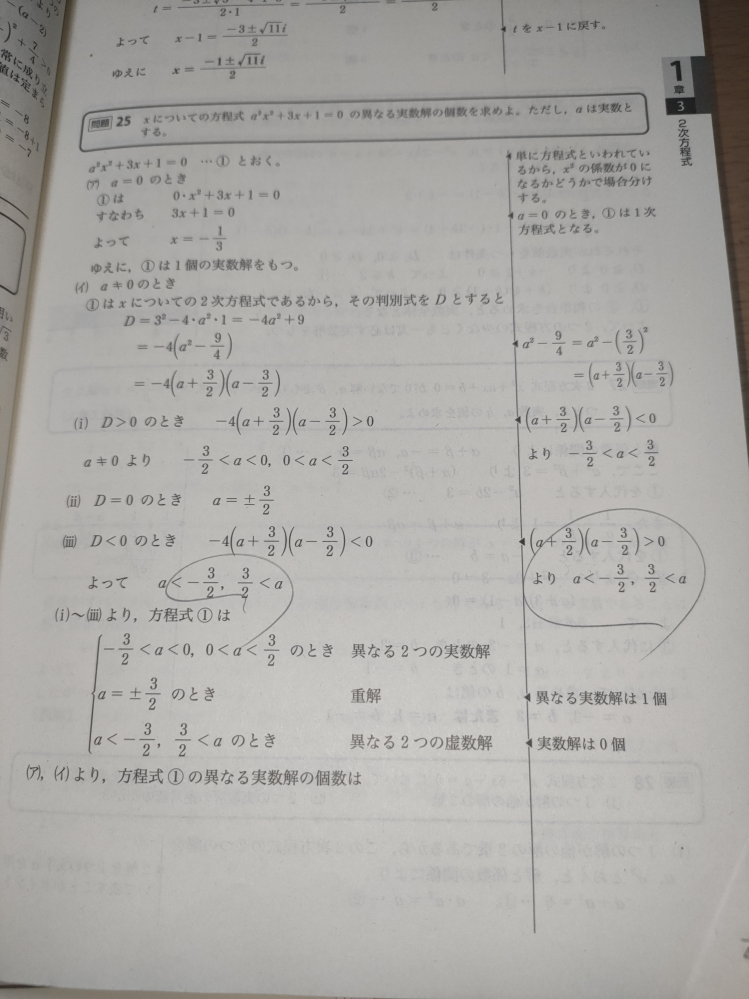 (a-2)
t = 2·1
よって x-1= -3±√11i / 2
ゆえに x= -1±√11i / 2
tをx-1に戻す。
1章
3
2次方程式
問題 25 xについての方程式 a²x²+3x+1=0 の異なる実数解の個数を求めよ。ただし,aは実数と
する。
a²x²+3x+1=0 …① とおく。
(ア) a=0 のとき
①は 0·x²+3x+1=0
すなわち 3x+1=0
よって x=-1/3
ゆえに,①は1個の実数解をもつ。
(イ) a≠0のとき
①はxについての2次方程式であるから,その判別式をDとすると
D=3²-4·a²·1=-4a²+9
=-4(a²-9/4)
=-4(a+3/2)(a-3/2)
(i) D>0 のとき -4(a+3/2)(a-3/2)>0
a≠0 より -3/2<a<0, 0<a<3/2
(ii) D=0 のとき a=±3/2
(iii) D<0 のとき -4(a+3/2)(a-3/2)<0
よって a<-3/2, 3/2<a
(i)~(iii)より,方程式①は
-3/2<a<0, 0<a<3/2 のとき 異なる2つの実数解
a=±3/2 のとき 重解
a<-3/2, 3/2<a のとき 異なる2つの虚数解
(ア),(イ)より,方程式①の異なる実数解の個数は
◀単に方程式といわれてい
るから,x²の係数が0に
なるかどうかで場合分け
する。
◀a=0 のとき,①は1次
方程式となる。
◀a²-9/4=a²-(3/2)²
=(a+3/2)(a-3/2)
◀(a+3/2)(a-3/2)<0
より -3/2<a<3/2
◀(a+3/2)(a-3/2)>0
より a<-3/2, 3/2<a
◀異なる実数解は1個
◀実数解は0個